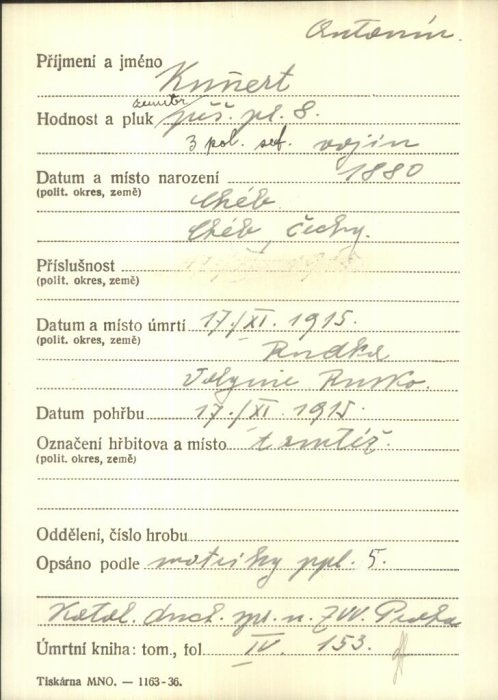 Antonín.
Příjmení a jméno Kunert
zeměbr.
Hodnost a pluk pěš. pl. 8.
3 pol. set. vojín
Datum a místo narození 1880
(polit. okres, země) Chéb
Chéb, Čechy.
Příslušnost
(polit. okres, země)
Datum a místo úmrtí 17./XI. 1915.
(polit. okres, země) Rudka
Volynie Rusko.
Datum pohřbu 17./XI. 1915.
Označení hřbitova a místo tamtéž.
(polit. okres, země)
Oddělení, číslo hrobu
Opsáno podle matriky ppl. 5.
Katol. duch. spr. n. ZVV. Praha
Úmrtní kniha: tom., fol IV. 153.
Tiskárna MNO. — 1163-36.